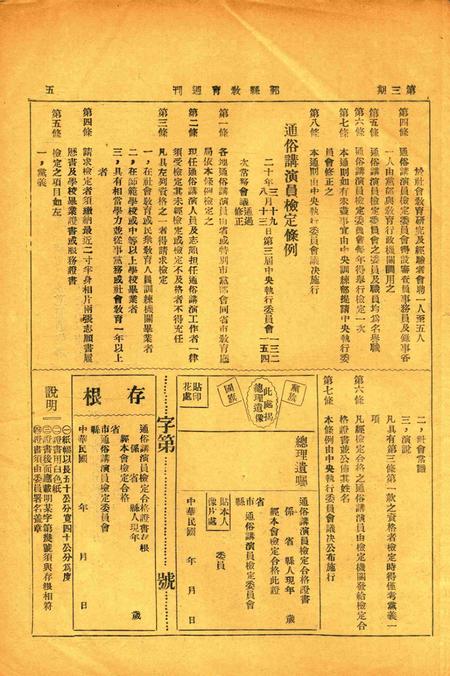 第三期
郫縣教育週刊
五
於社會教育研究及經驗者會聘一人至五人
第四條 通俗講演員檢定委員會得設審查員事務員及錄事各
一人由黨部與教育行政機關調用之
第五條 通俗講演員檢定委員會之委員及職員均為名譽職
第六條 通俗講演員檢定委員會每年得舉行檢定一次
第七條 本通則如有未盡事宜由中央訓練部提請中央執行委
員會修正之
第八條 本通則由中央執行委員會議決施行
通俗講演員檢定條例
二十年三月十九日第三屆中央執行委員會一三二
次常會議通過
八月十三 一五四
修正
第一條 各地通俗講演員由省或特別市黨部會同省市教育廳
局依本條例檢定之
第二條 現任通俗講演人員及志願担任通俗講演工作者一律
須受檢定其未經檢定或檢定不及格者不得充任
第三條 凡具左列資格之一者得請求檢定
一，在社會教育或民衆教育人員訓練機關畢業者
二，在師範學校或中等以上學校畢業者
三，具有相當學力並從事黨務或社會教育一年以上
者
第四條 請求檢定者須繳納最近二寸半身相片兩張志願書履
歷書及學校畢業證書或服務證書
第五條 檢定之項目如左
一，黨義
二，社會常識
三，演說
凡具有第三條第一款之資格者檢定時得僅考黨義一
項
第六條 檢定合格之通俗講演員由檢定機關發給檢定合
格證書並公佈其姓名
第七條 本條例由中央執行委員會議決公布施行
黨旗
此處揭總理遺像
國旗
貼印花處
總理遺囑
通俗講演員檢定合格證書
係 省 縣人現年 歲
經本會檢定合格此證
省市縣 通俗講演員檢定委員會
委員
貼本人像片處
中華民國 年 月 日
字第 號
存根
通俗講演員檢定合格證書存根
係 省 縣人現年 歲
經本會檢定合格
省市縣 通俗講演員檢定委員會
中華民國 年 月 日
說明
㈠紙幅以長五十公分寬四十公分為度
㈡證書用白色紙
㈢證書後面應載明某字第幾號須與存根相符
㈣證書須由委員署名蓋章